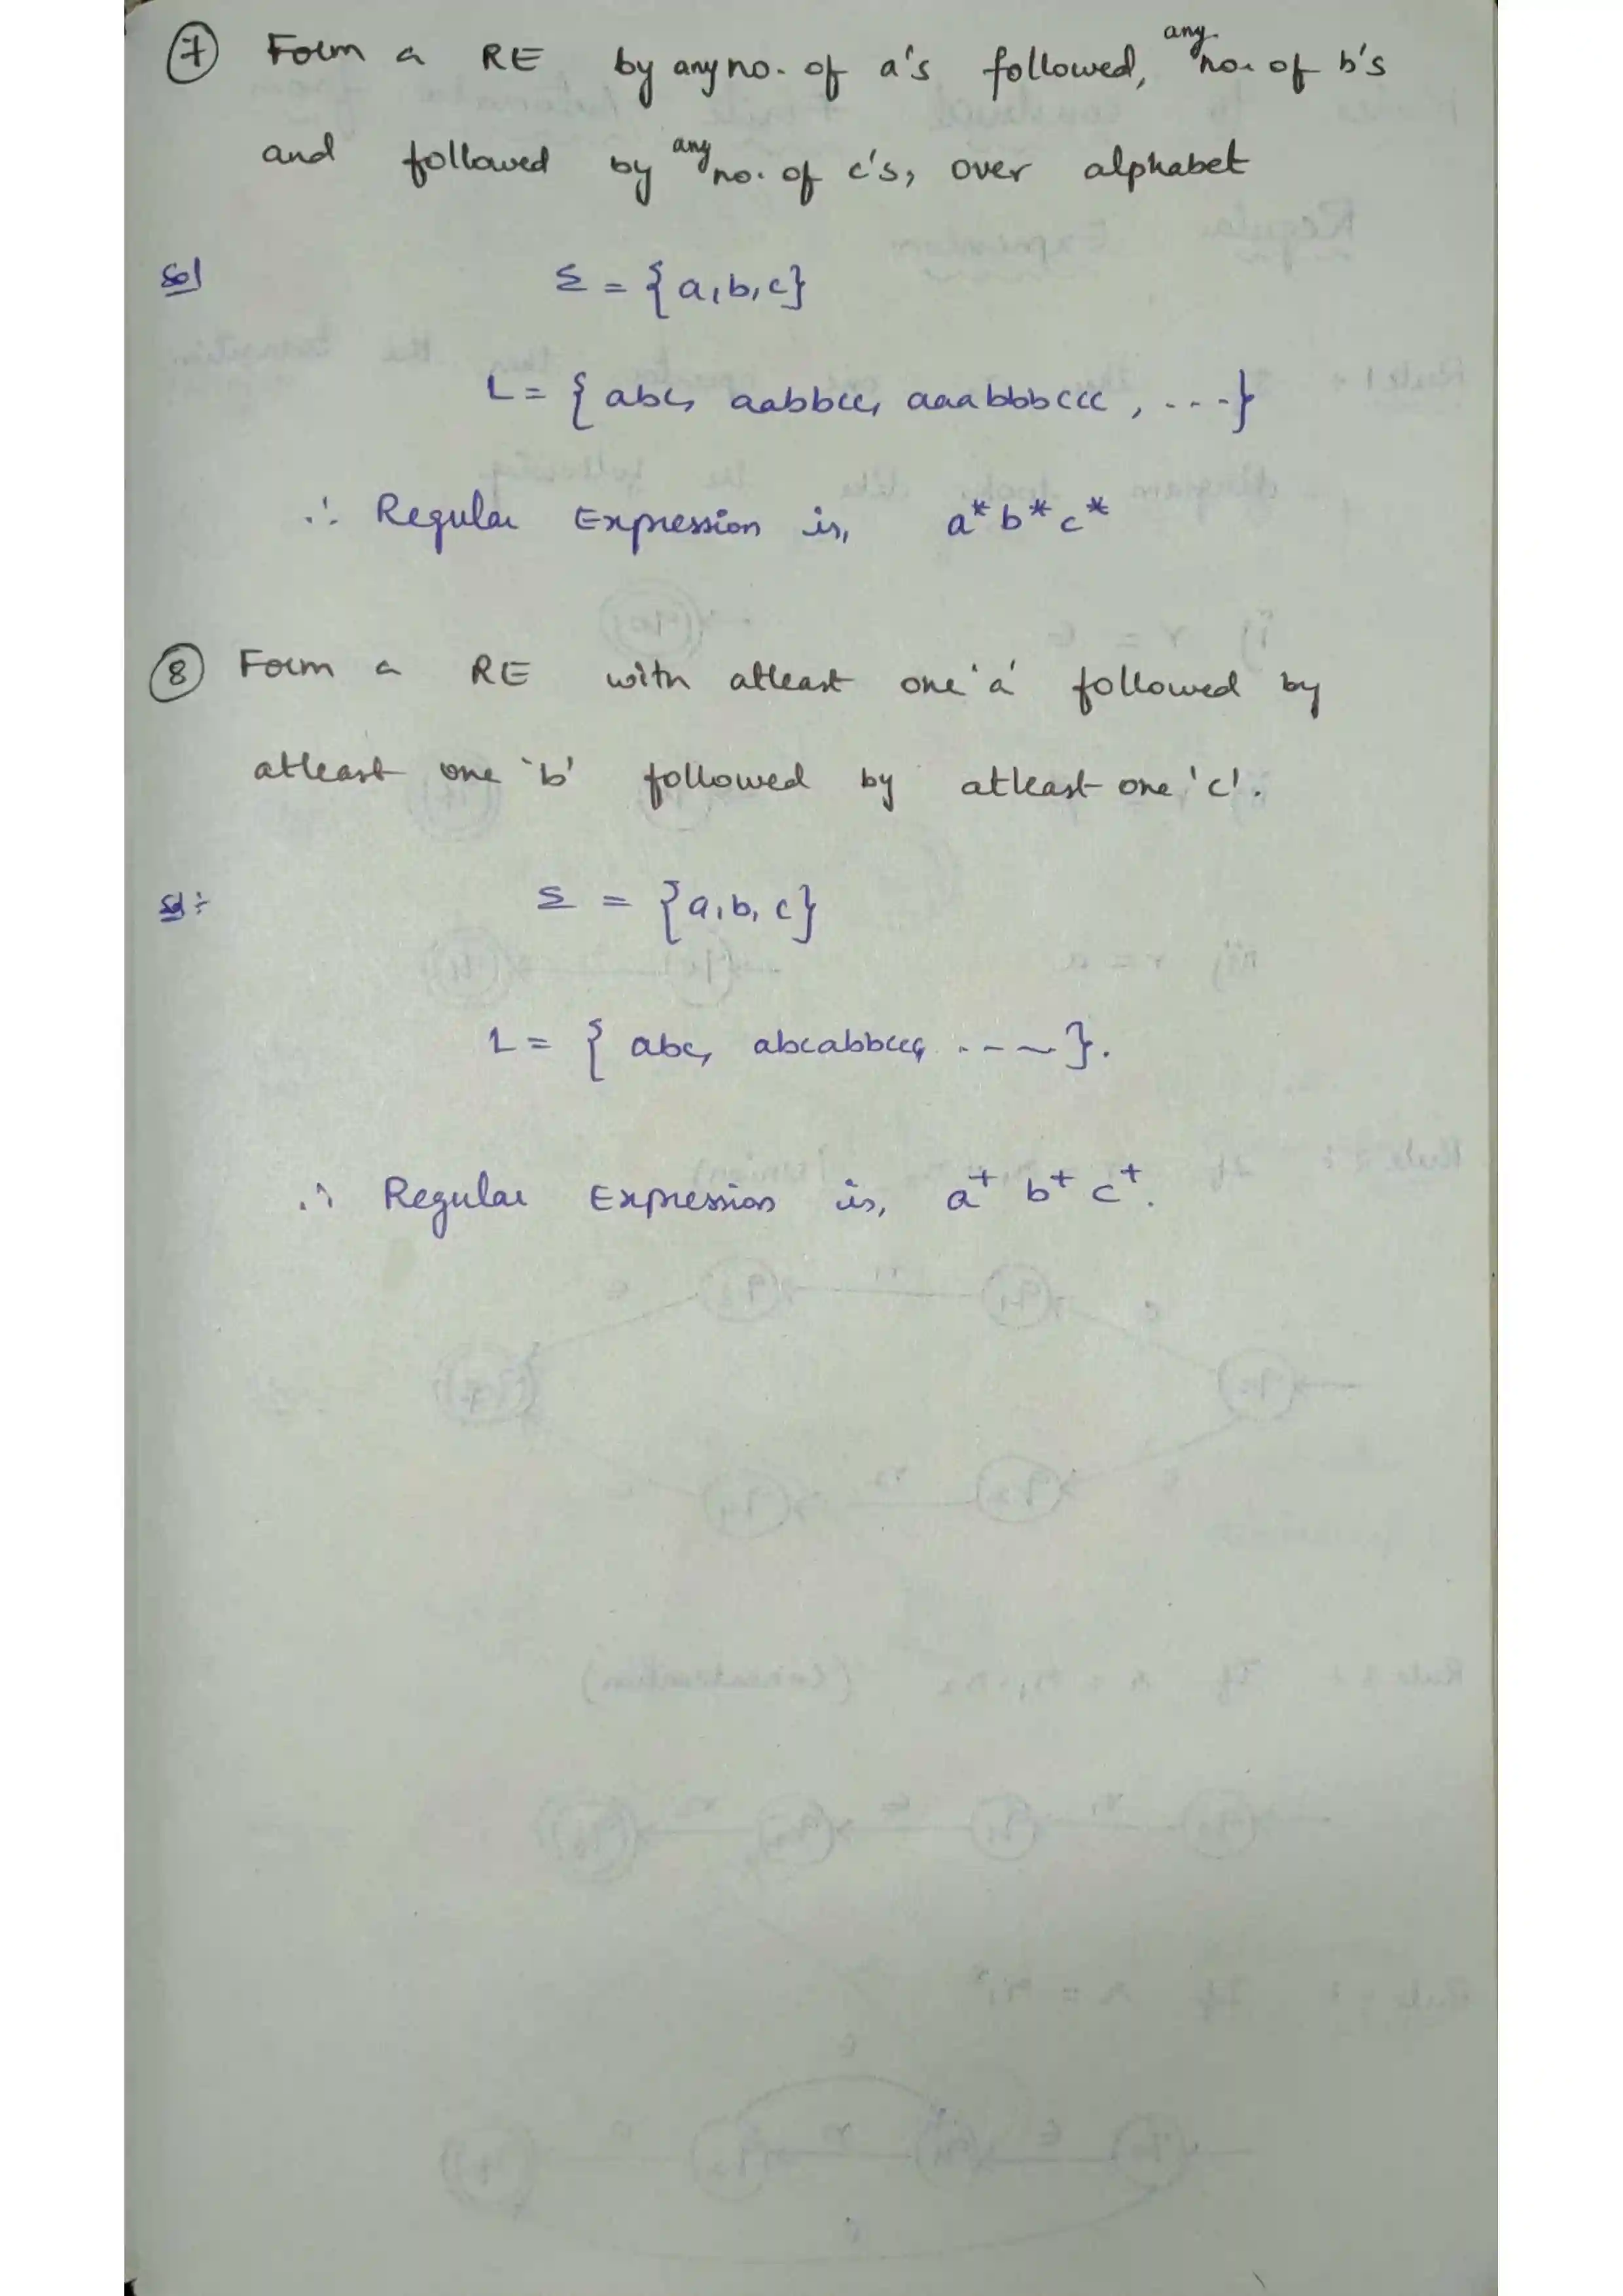 7 Form a RE by any no. of a's followed, any no. of b's
and followed by any no. of c's, over alphabet
Sol Σ = {a,b,c}
L = { abc, aabbcc, aaabbbccc, ---}
∴ Regular Expression is, a* b* c*
8 Form a RE with atleast one 'a' followed by
atleast one 'b' followed by atleast one 'c'.
Sol :- Σ = {a,b,c}
L = { abc, abcabbccc, ---- }.
∴ Regular Expression is, a⁺ b⁺ c⁺.